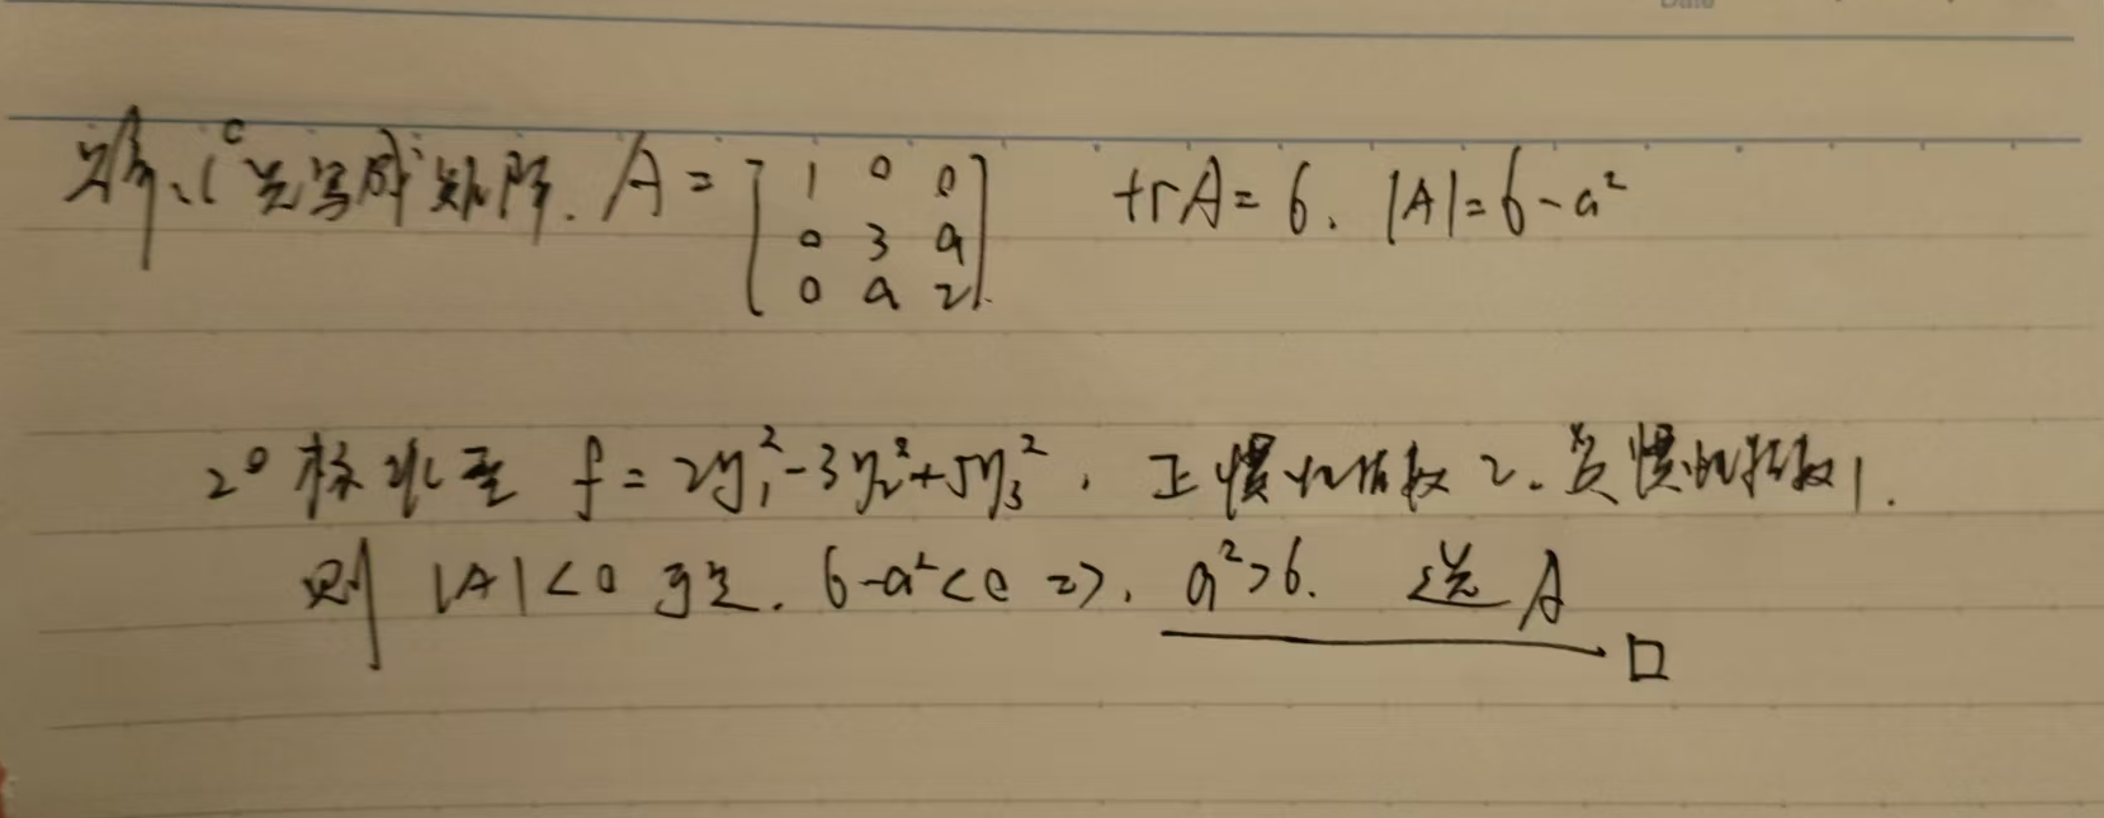 解、1° 先写成矩阵. A = [1 0 0 trA = 6. |A| = 6 - a²
0 3 a
0 a 2].
2° 标准型 f = 2y₁² - 3y₂² + 5y₃², 正惯性指数 2. 负惯性指数 1.
则 |A| < 0 即可. 6 - a² < 0 => . a² > 6. 选 A
□